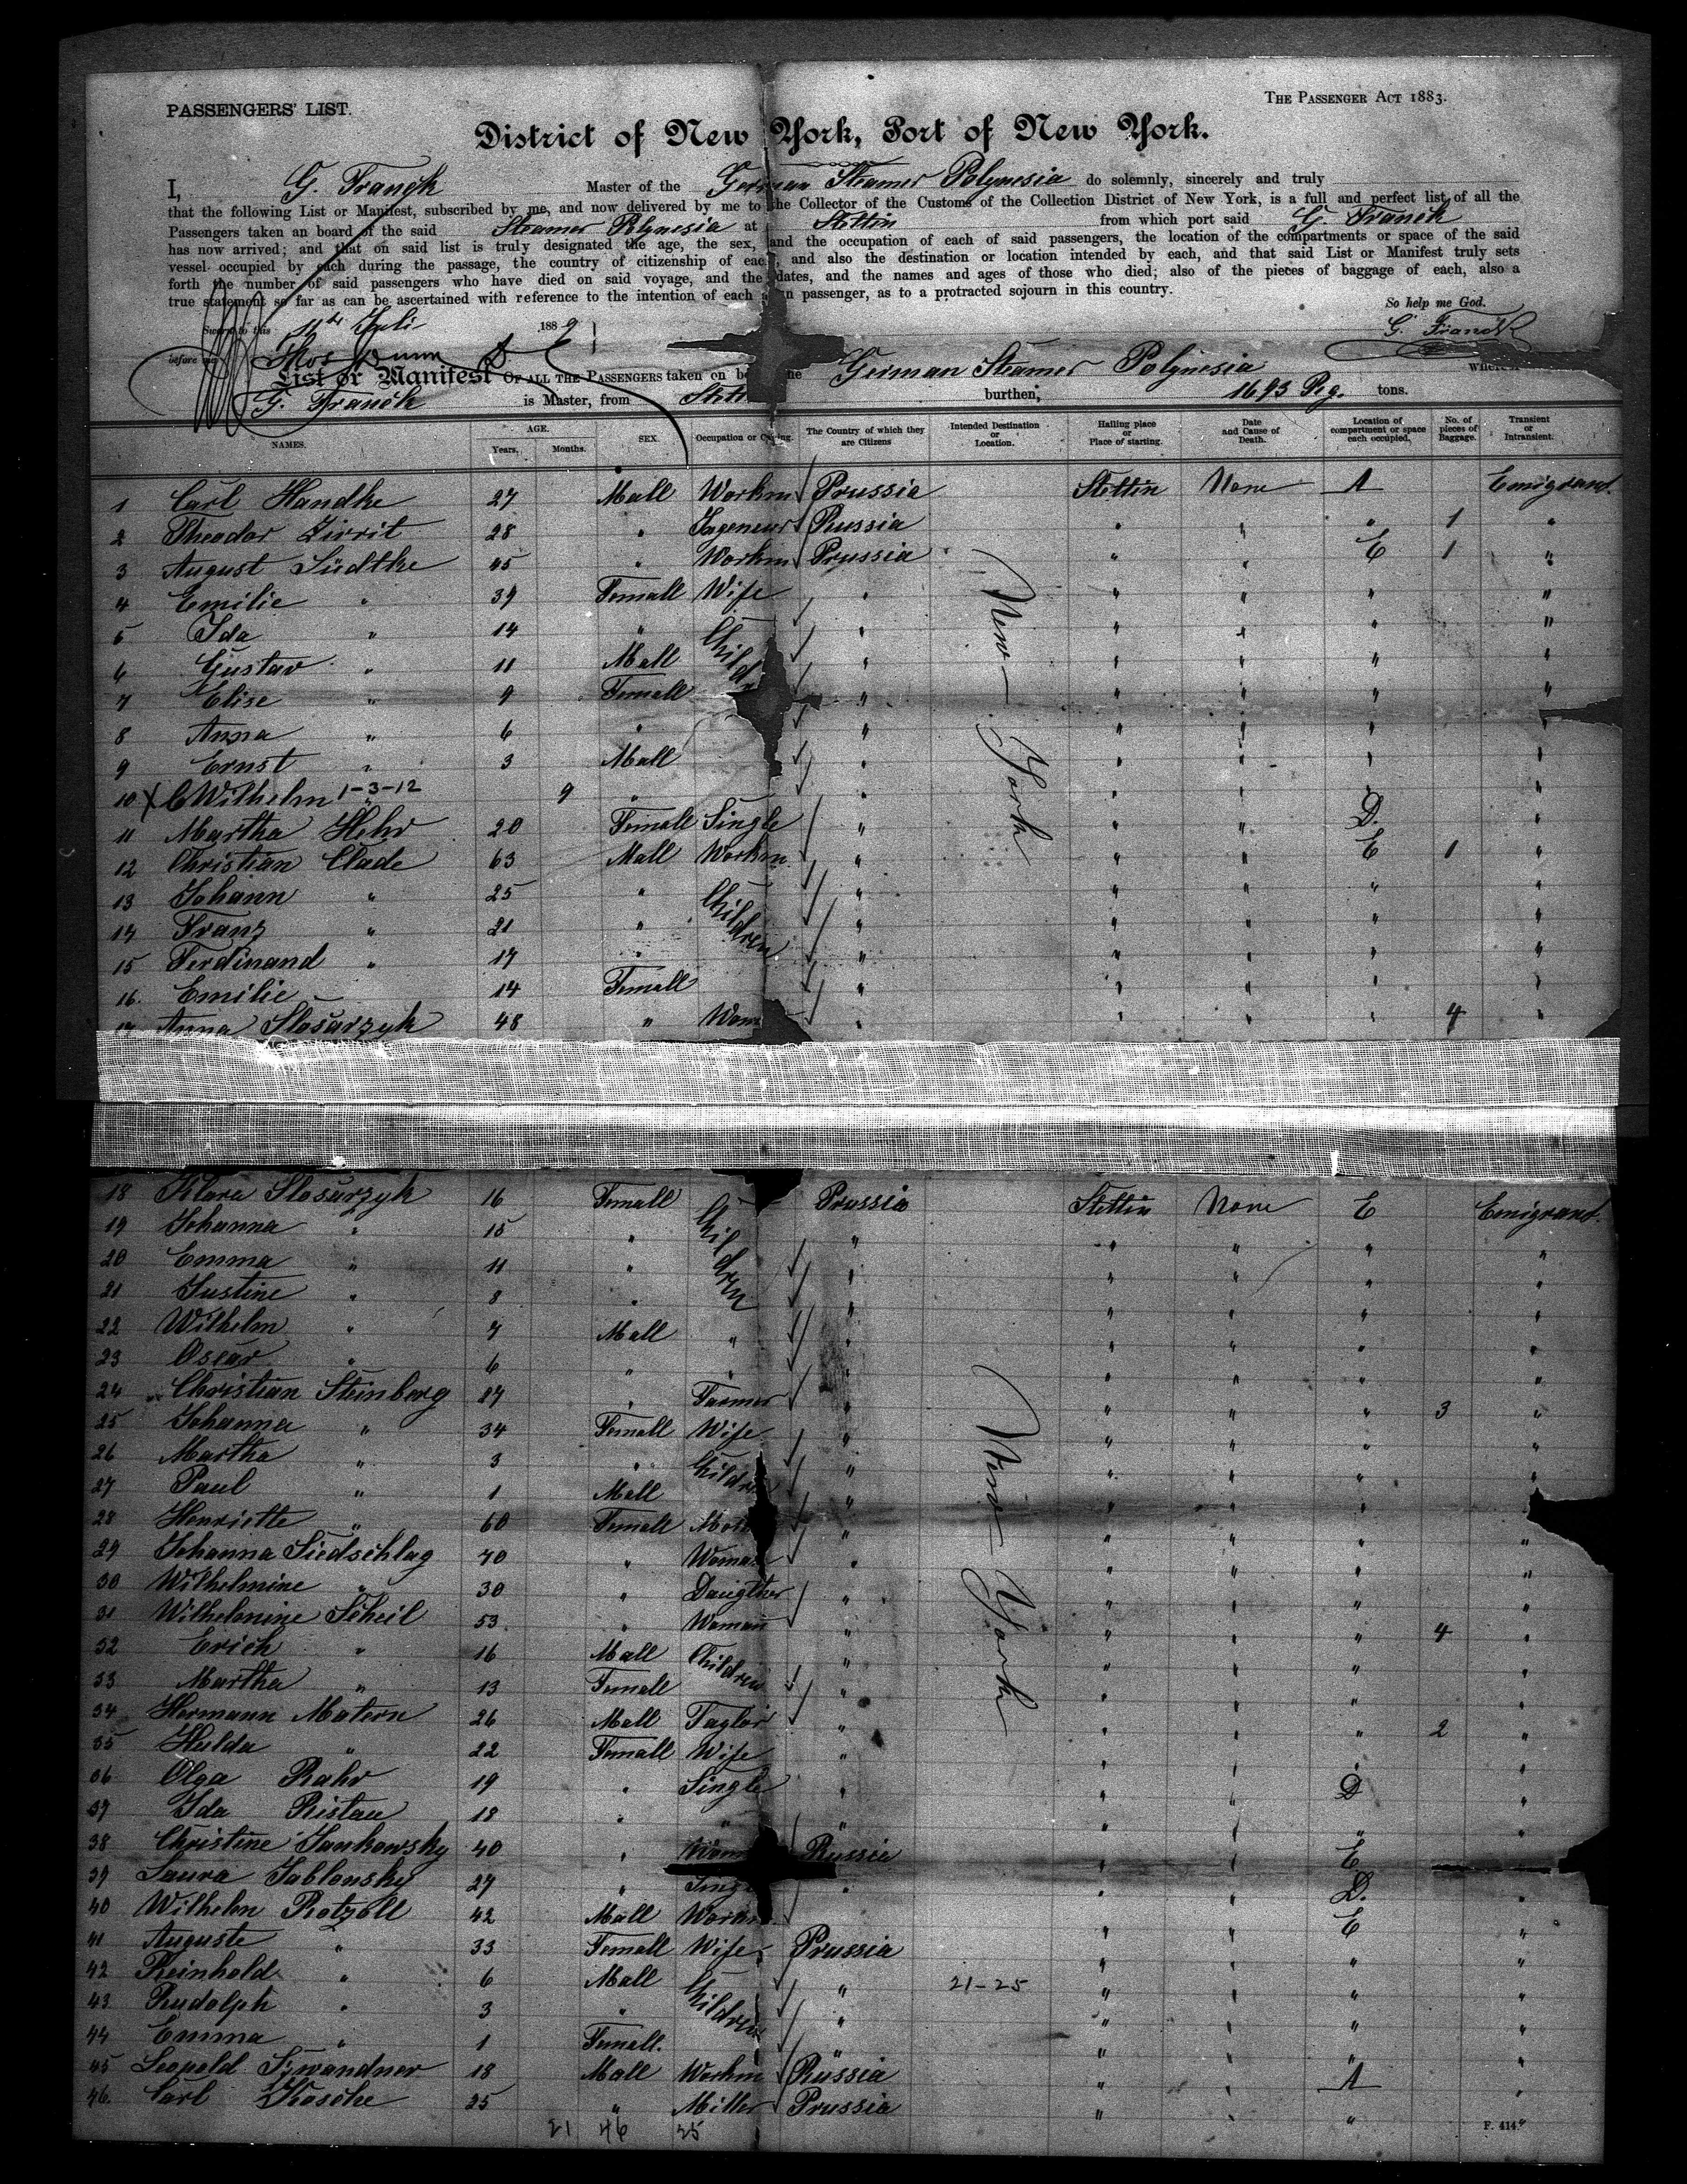 PASSENGERS' LIST.
THE PASSENGER ACT 1883.
District of New York, Port of New York.
I, G. Franck Master of the German Steamer Polynesia do solemnly, sincerely and truly
that the following List or Manifest, subscribed by me, and now delivered by me to the Collector of the Customs of the Collection District of New York, is a full and perfect list of all the
Passengers taken an board of the said Steamer Polynesia at Stettin from which port said G. Franck
has now arrived; and that on said list is truly designated the age, the sex, and the occupation of each of said passengers, the location of the compartments or space of the said
vessel occupied by each during the passage, the country of citizenship of eac and also the destination or location intended by each, and that said List or Manifest truly sets
forth the number of said passengers who have died on said voyage, and the dates, and the names and ages of those who died; also of the pieces of baggage of each, also a
true statement so far as can be ascertained with reference to the intention of each n passenger, as to a protracted sojourn in this country.
So help me God.
Sworn to this 11th Juli 1889
G. Franck
before me Thos Dunn
List or Manifest OF ALL THE PASSENGERS taken on bo he German Steamer Polynesia where
G. Franck is Master, from Stett burthen, 1693 Reg. tons.
NAMES. AGE. Years. Months. SEX Occupation or C ing. The Country of which they are Citizens Intended Destination or Location. Hailing place or Place of starting. Date and Cause of Death. Location of compartment or space each occupied. No. of pieces of Baggage. Transient or Intransient.
1 Carl Handke 27 Mall Workm Prussia Stettin None A Emigrand.
2 Theodor Zirrit 28 " Ingeneur Russia " " " 1 "
3 August Lüdtke 45 " Workm Prussia " " E 1 "
4 Emilie " 39 Femall Wife " " " " "
5 Ida " 14 " Child " " " " "
6 Gustav " 11 Mall " " " " "
7 Elise " 9 Femall " " " " "
8 Anna " 6 " " " " " "
9 Ernst " 3 Mall " " " " "
10 X C Wilhelm 1-3-12 " 9 " " " " " "
11 Martha Hehr 20 Femall Single " " " D. "
12 Christian Clade 63 Mall Workm. " " " E 1 "
13 Johann " 25 " Children " " " " "
14 Franz " 21 " " " " " "
15 Ferdinand " 17 " " " " " "
16. Emilie " 14 Femall " " " " "
17 Anna Slosarzyk 48 " Wom " " " " 4 "
New-York
18 Klara Slosarzyk 16 Femall Children Prussia Stettin None E Emigrand.
19 Johanna " 15 " " " " " "
20 Emma " 11 " " " " " "
21 Justine " 8 " " " " " "
22 Wilhelm " 7 Mall " " " " " "
23 Oscar " 6 " " " " " " "
24 Christian Steinberg 37 " Farmer " " " " 3 "
25 Johanna " 34 Femall Wife " " " " "
26 Martha " 3 " Children " " " " "
27 Paul " 1 Mall " " " " "
28 Henriette " 60 Femall Moth " " " " "
29 Johanna Siedschlag 70 " Woman " " " " "
30 Wilhelmine " 30 " Daugther " " " " "
31 Wilhelmine Scheil 53 " Woman " " " " 4 "
32 Erich " 16 Mall Children " " " " "
33 Martha " 13 Femall " " " " "
34 Hermann Matern 26 Mall Taylor " " " " 2 "
35 Hulda " 22 Femall Wife " " " " "
36 Olga Rahr 19 " Single " " " D "
37 Ida Ristau 18 " " " " " " "
38 Christine Jankowsky 40 " Wom Russia " " E "
39 Laura Jablonsky 27 " Singl " " " D. "
40 Wilhelm Rotzoll 42 Mall Workm " " E "
41 Auguste " 33 Femall Wife Prussia " " " "
42 Reinhold " 6 Mall Children " 21-25 " " " "
43 Rudolph " 3 " " " " " "
44 Emma " 1 Femall. " " " " "
45 Leopold 18 Mall Workm Russia " " A "
46. Carl Kosche 25 " Miller Prussia " " " "
New-York
21 46 25
F. 414.